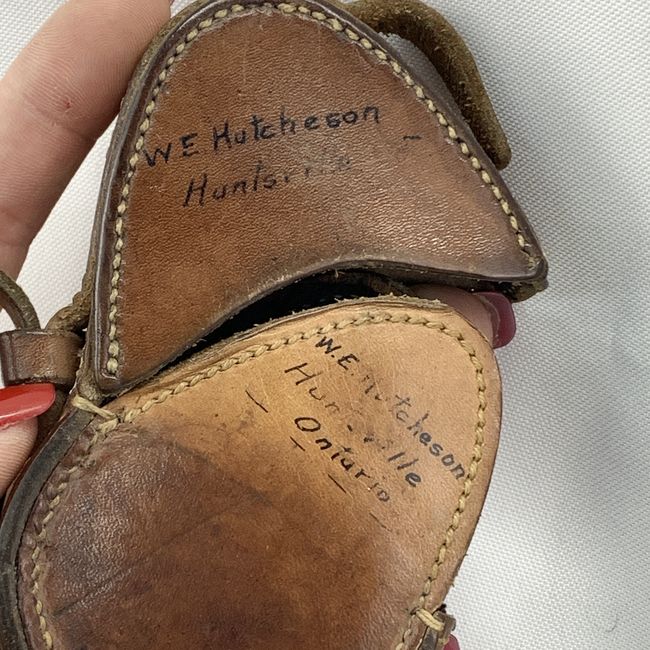 W E Hutcheson
Huntsville
W.E Hutcheson
Huntsville
Ontario